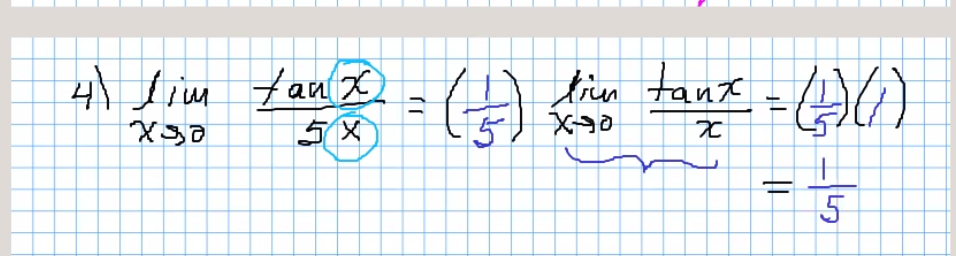 4) lim x→0 tan x / 5x = (1/5) lim x→0 tan x / x = (1/5)(1)
= 1/5